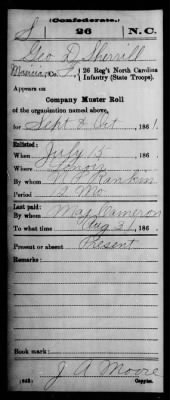 (Confederate.)
S 26 N.C.
Geo D Sherrill
Musician, Co. F, 26 Reg't North Carolina
Infantry (State Troops).
Appears on
Company Muster Roll
of the organization named above,
for Sept & Oct, 186
Enlisted:
When July 15, 186
Where Lenoir
By whom N P Rankin
Period
Last paid:
By whom Maj Cameron
To what time Aug 31, 186
Present or absent Present
Remarks:
Book mark:
J A Moore
(642) Copyist.